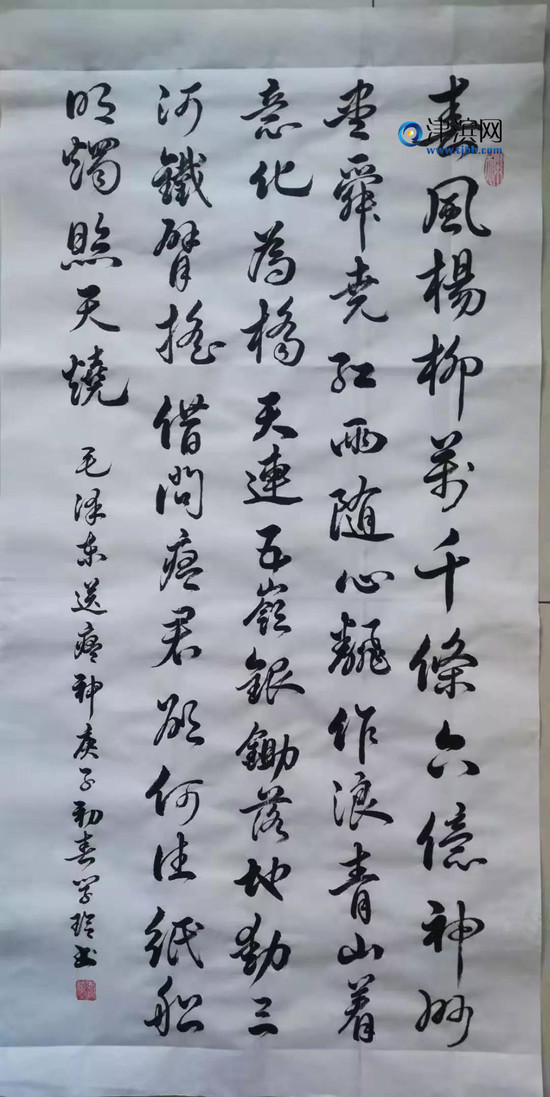 春風楊柳萬千條六億神州
盡舜尭紅雨随心飜作浪青山着
意化為橋天連五嶺銀鋤落地動三
河鐵臂搖借問瘟君欲何往紙船
明燭照天燒
毛泽東送瘟神庚子初春書
津滨网
www.tjbh.com